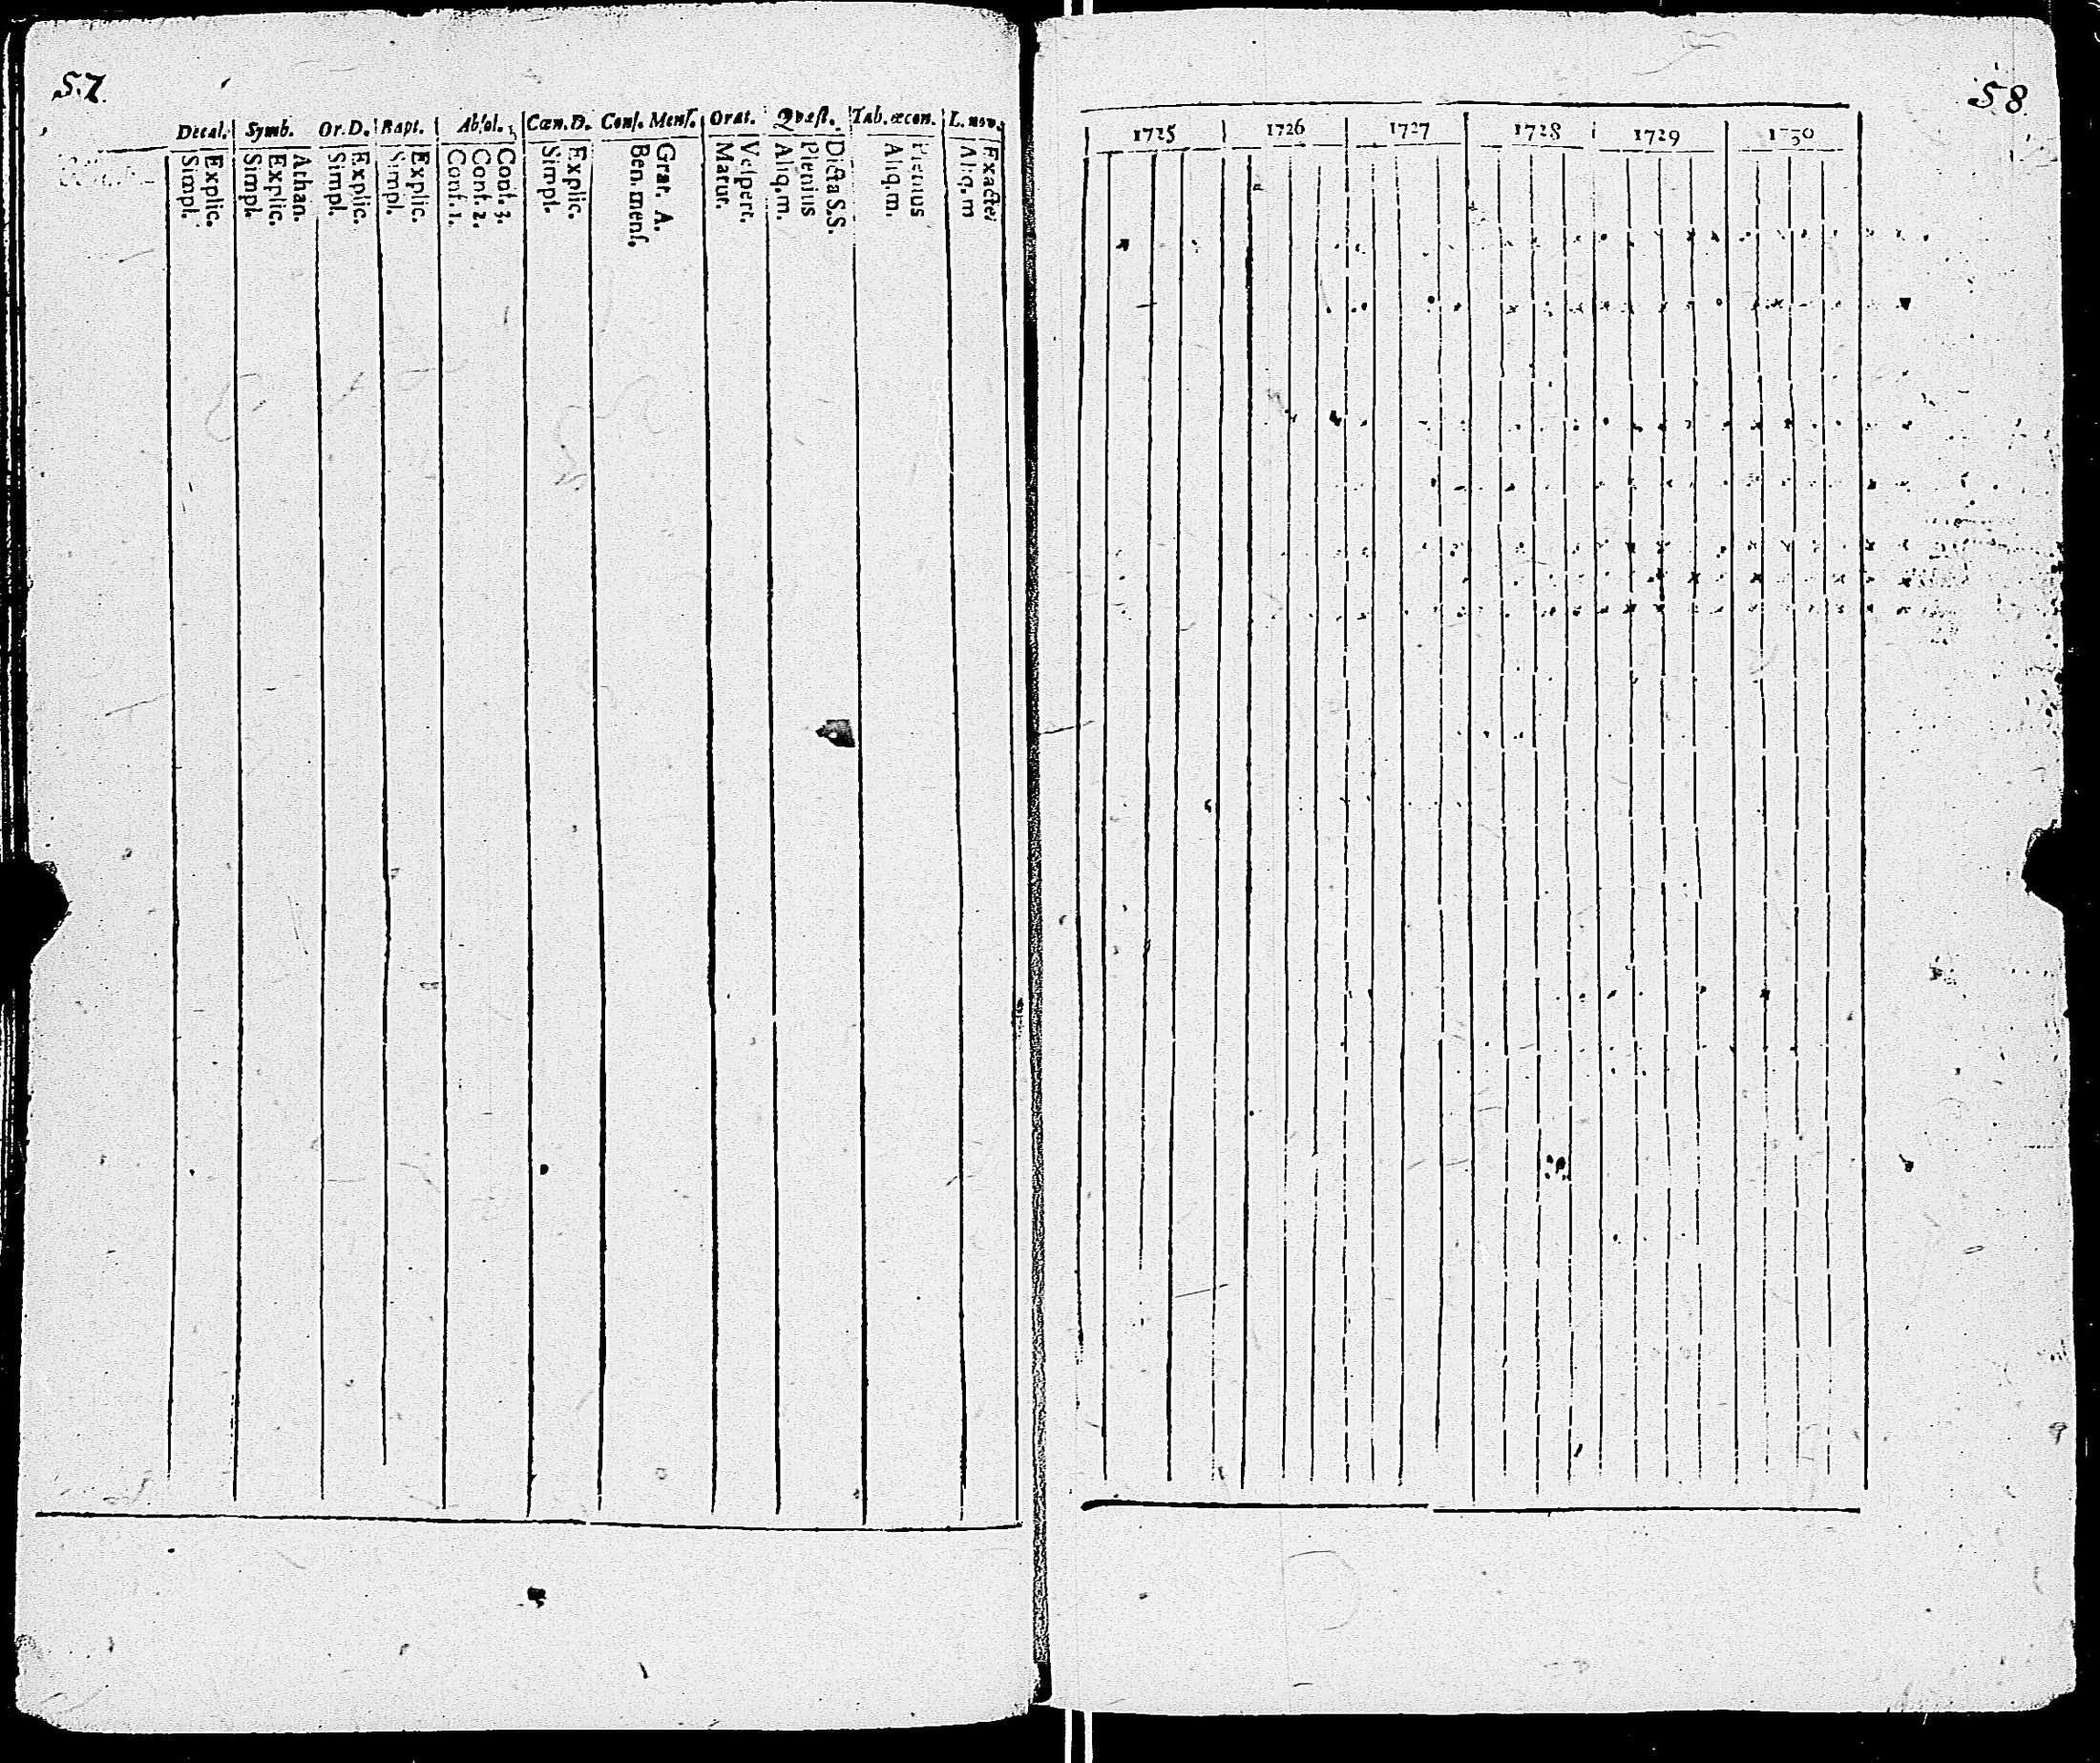 57
Decal. Symb. Or. D. Bapt. Absol. Cœn. D. Conf. Menſ. Orat. Qvæſt. Tab. œcon. L. nov.
Explic. Simpl.
Athan. Explic. Simpl.
Explic. Simpl.
Explic. Simpl.
Conf. 3. Conf. 2. Conf. 1.
Explic. Simpl.
Grat. A. Ben. menſ.
Veſpert. Matut.
Dicta S.S. Plenius Aliq.m.
Plenius Aliq.m.
Exactei Aliq.m
58
1725 1726 1727 1728 1729 1730